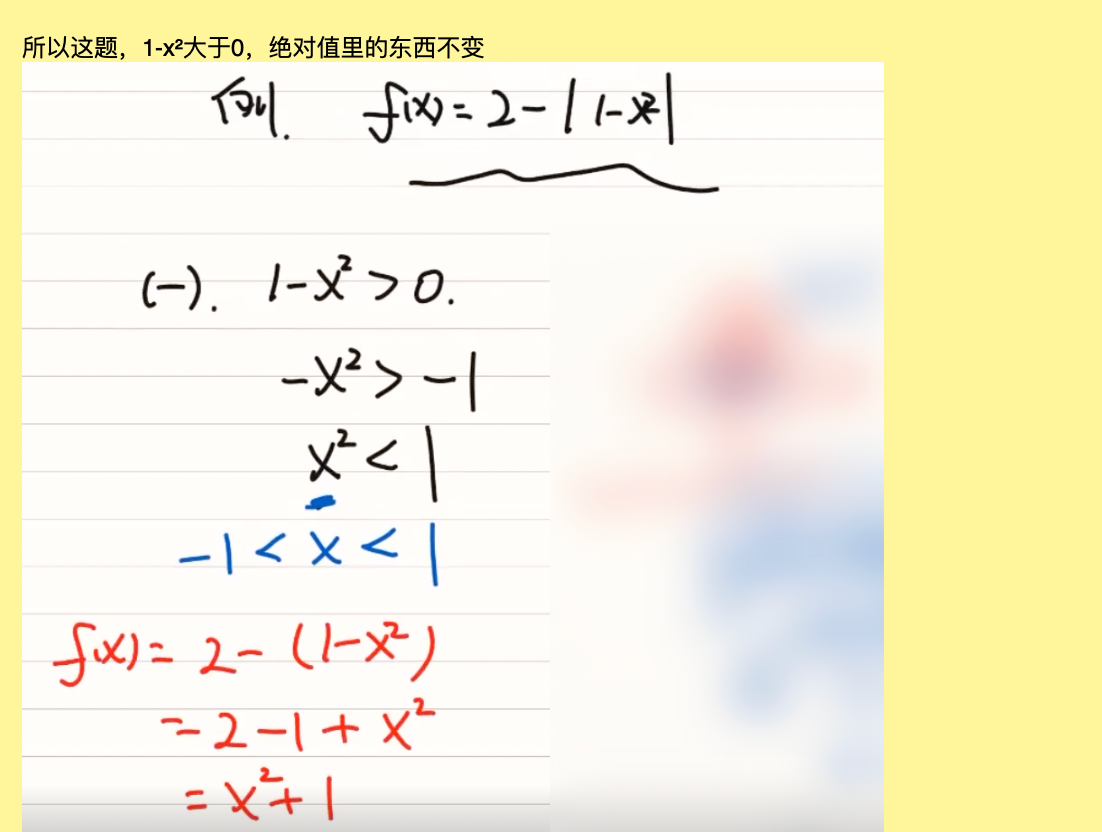 所以这题，1-x²大于0，绝对值里的东西不变
例. f(x)=2-|1-x²|
(一). 1-x²>0.
-x²>-1
x²<1
-1<x<1
f(x)=2-(1-x²)
=2-1+x²
=x²+1